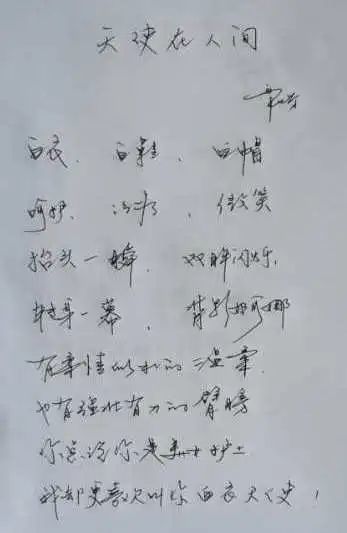 天使在人间
白衣、白鞋、白帽
呵护、冷静、微笑
抬头一瞬,双眸闪烁,
转身一幕,背影婀娜
有柔情似水的温柔
也有强壮有力的臂膀
你总说你是护士
我却更喜欢叫你白衣天使!